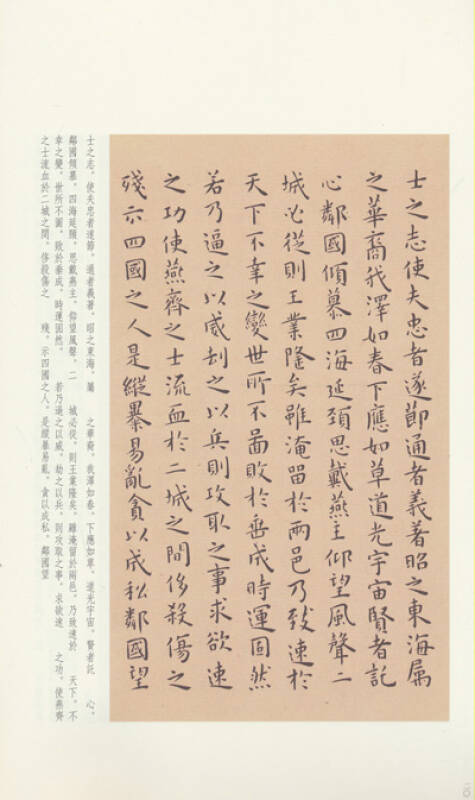 士之志使夫忠者遂節通者義著昭之東海属
之華裔我澤如春下應如草道光宇宙賢者託
心鄰國傾慕四海延頸思戴燕主仰望風聲二
城必從則王業隆矣雖淹留於兩邑乃致速於
天下不幸之變世所不圖敗於垂成時運固然
若乃逼之以威劫之以兵則攻取之事求欲速
之功使燕齊之士流血於二城之間侈殺傷之
殘示四國之人是縱暴易亂貪以成私鄰國望
士之志。使夫忠者遂節。通者義著。昭之東海。屬 之華裔。我澤如春。下應如草。道光宇宙。賢者託 心。
鄰國傾慕。四海延頸。思戴燕主。仰望風聲。二 城必從。則王業隆矣。雖淹留於兩邑。乃致速於 天下。不
幸之變。世所不圖。敗於垂成。時運固然。 若乃逼之以威。劫之以兵。則攻取之事。求欲速 之功。使燕齊
之士流血於二城之間。侈殺傷之 殘。示四國之人。是縱暴易亂。貪以成私。鄰國望